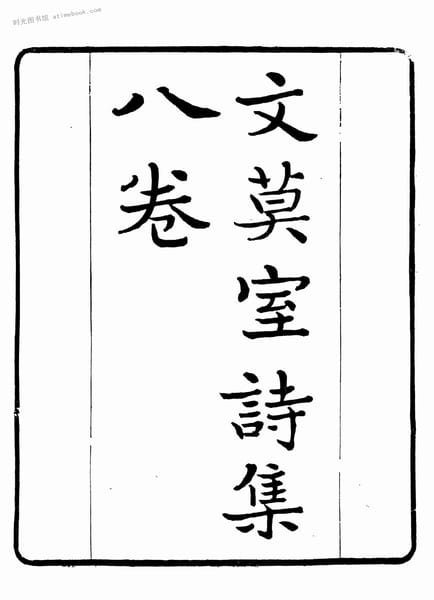 时光图书馆 xtimebook.com
文莫室詩集
八卷